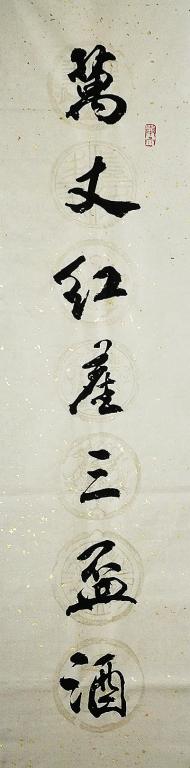 萬丈红塵三盃酒